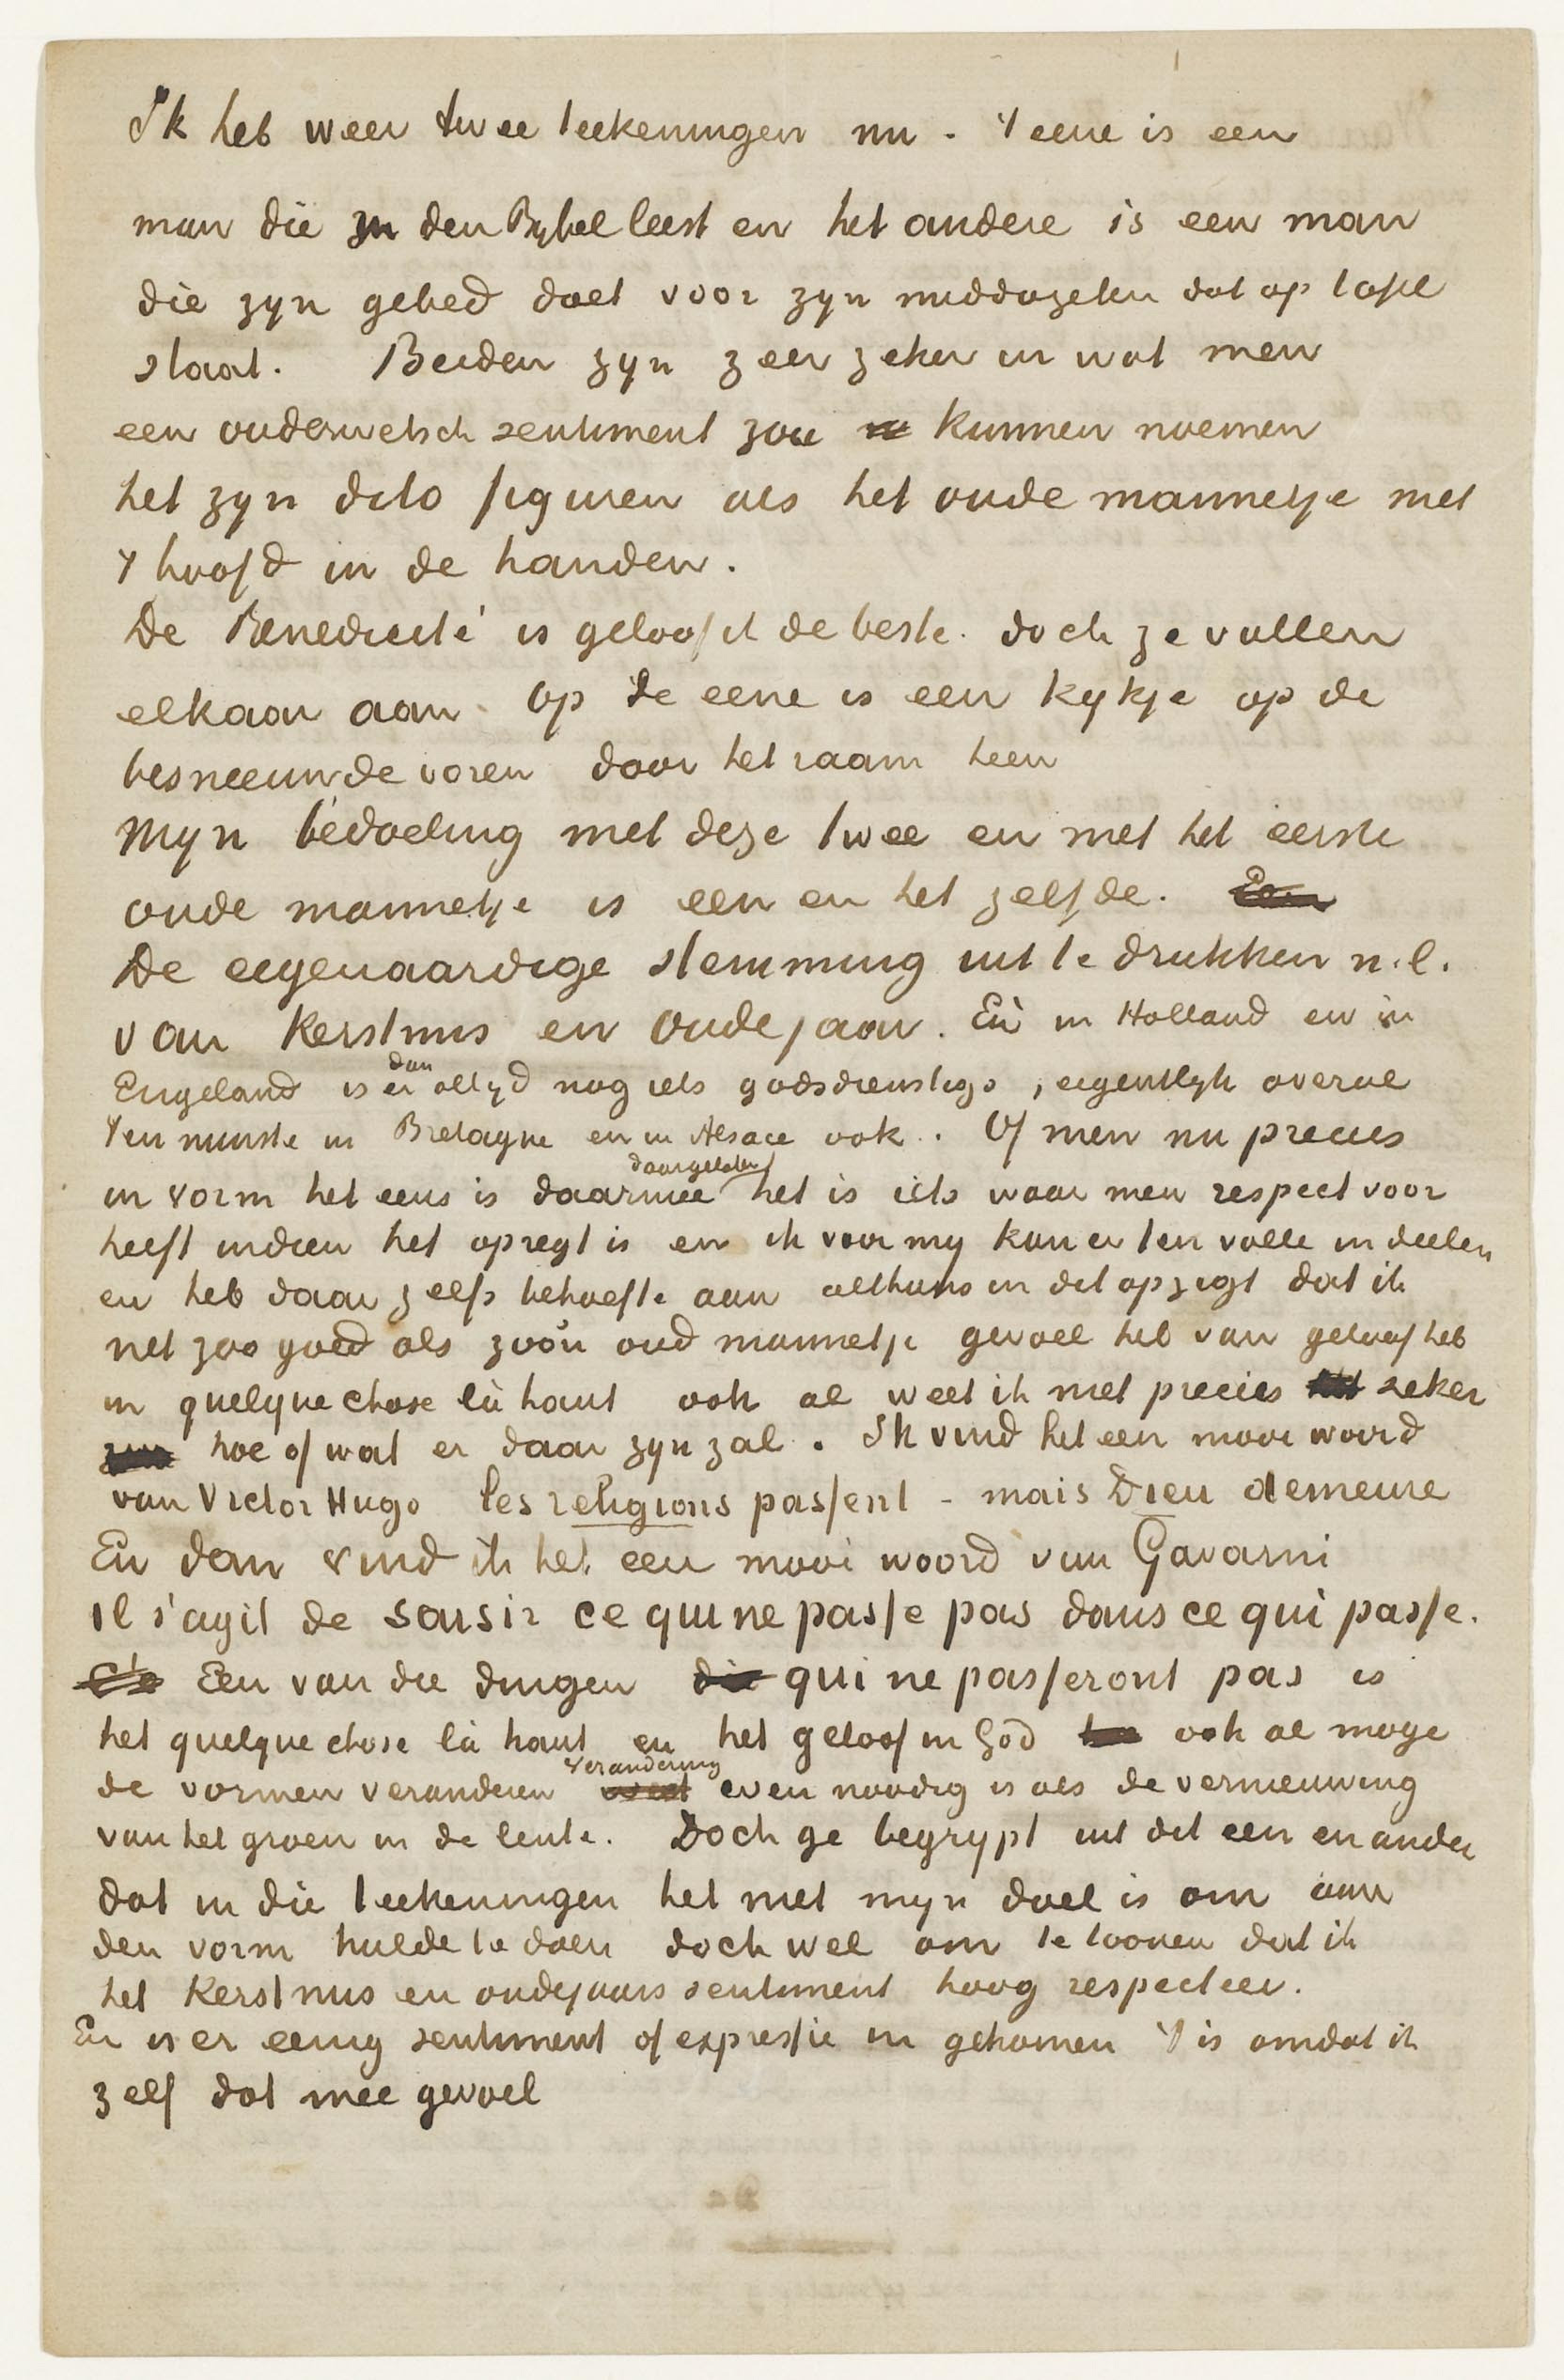 Ik heb weer twee teekeningen nu. 't eene is een
man die in den Bybel leest en het andere is een man
die zyn gebed doet voor zyn middageten dat op tafel
staat. Beiden zyn zeer zeker in wat men
een ouderwetsch sentiment zou kunnen noemen
het zyn dito figuren als het oude mannetje met
't hoofd in de handen.
De Benedicité is geloof ik de beste. doch ze vullen
elkaar aan. Op de eene is een kykje op de
besneeuwde voren door het raam heen
Myn bedoeling met deze twee en met het eerste
oude mannetje is een en het zelfde. Een
De eigenaardige stemming uit te drukken n.l.
van Kerstmis en Oudejaar. En in Holland en in
Engeland is er dan altyd nog iets godsdienstigs, eigentlyk overal
ten minste in Bretagne en in Alsace ook. Of men nu precies
in vorm het eens is daarmee daargelaten het is iets waar men respect voor
heeft indien het opregt is en ik voor my kan er ten volle in deelen
en heb daar zelfs behoefte aan althans in dat opzigt dat ik
net zoo goed als zoo'n oud mannetje gevoel heb van geloof heb
in quelque chose là haut ook al weet ik niet precies zeker
hoe of wat er daar zyn zal. Ik vind het een mooi woord
van Victor Hugo les religions passent - mais Dieu demeure
En dan vind ik het een mooi woord van Gavarni
il s'agit de saisir ce qui ne passe pas dans ce qui passe.
Een van die dingen die qui ne passeront pas is
het quelque chose là haut en het geloof in God ook al moge
de vormen veranderen verandering even noodig is als de vernieuwing
van het groen in de lente. Doch ge begrypt uit dit een en ander
dat in die teekeningen het niet myn doel is om aan
den vorm hulde te doen doch wel om te toonen dat ik
het Kerstmis en oudejaars sentiment hoog respecteer.
En is er eenig sentiment of expressie in gekomen 't is omdat ik
zelf dat mee gevoel